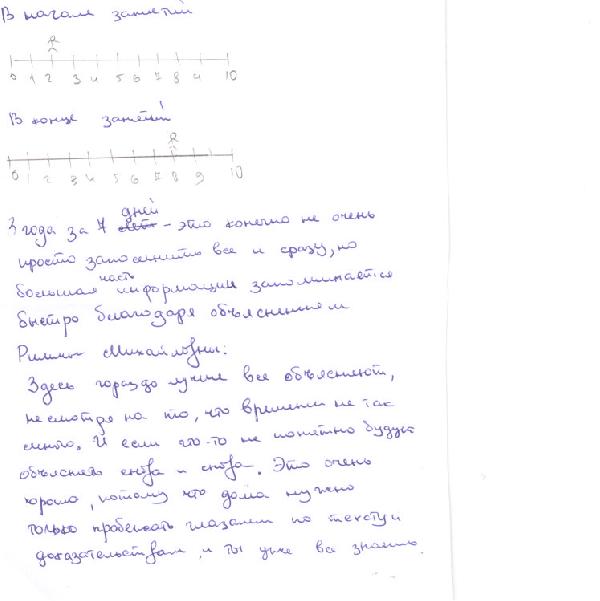 В начале занятий
Я
0 1 2 3 4 5 6 7 8 9 10
В конце занятий
Я
0 1 2 3 4 5 6 7 8 9 10
дней
3 года за 7 лет - это конечно не очень
просто запомнить все и сразу, но
часть
большая информации запоминается
быстро благодаря объяснениям
Риммы Михайловны:
Здесь гораздо лучше все объясняют,
несмотря на то, что времени не так
много. И если что-то не понятно будут
объяснять снова и снова. Это очень
хорошо, потому что дома нужно
только пробежать глазами по тексту и
доказательствам, и ты уже все знаешь.